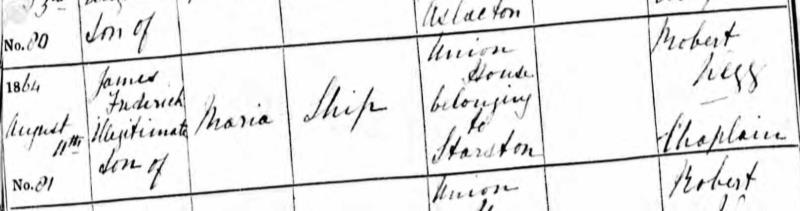 Aslacton
No. 80
Son of
1864
August
11th
No. 81
James
Frederick
illegitimate
Son of
Maria
Ship
Union
House
belonging
to
Starston
Robert
Chaplain
Union
Robert